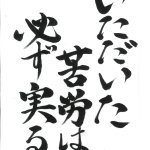 いただいた
苦労は
必ず実る